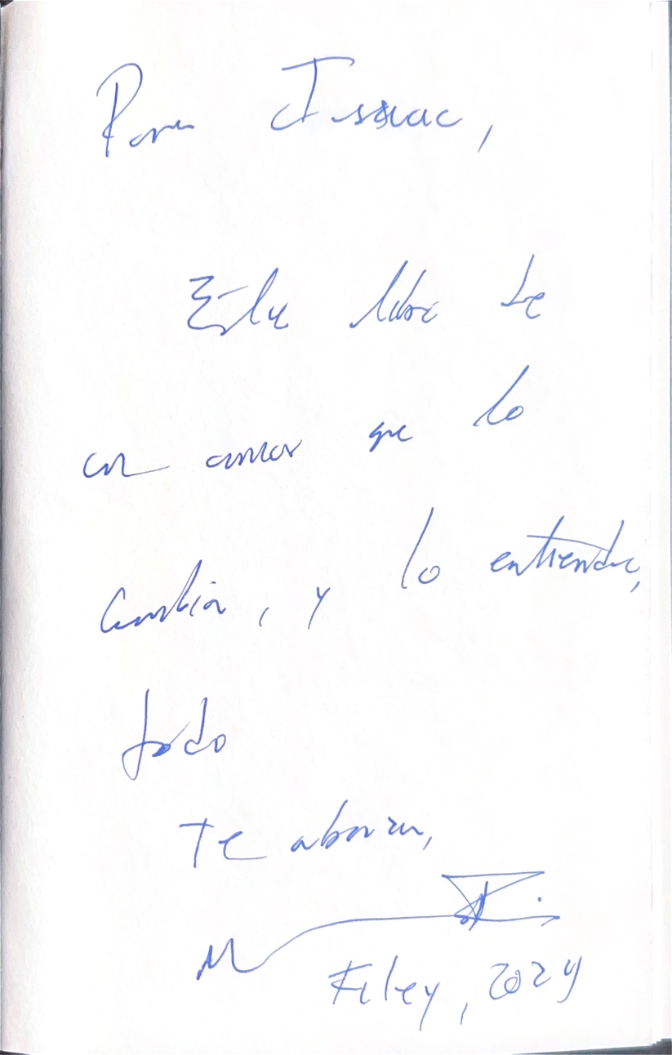 Para Issac,
Este libro de
un amor que lo
cambia, y lo entiende,
todo
Te abraza,
Filey, 2024